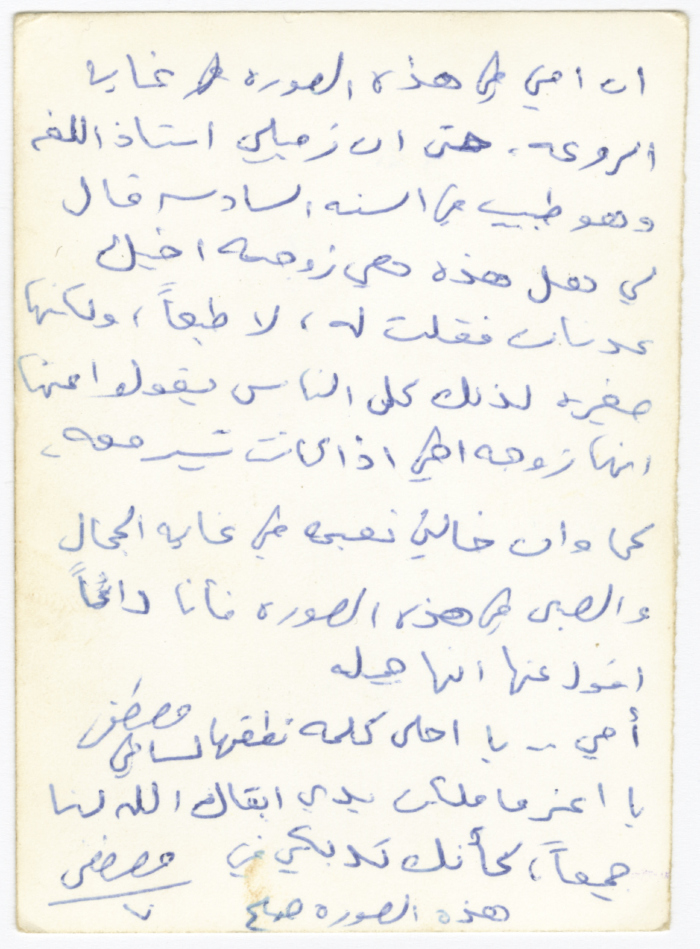 ان امي في هذه الصوره في غايه
الروعه. حتى ان زميلي استاذ اللغه
وهو طبيب في السنه السادسه قال
لي هل هذه هي زوجه اخيك
عدنان فقلت له، لا طبعاً، ولكنها
صغيره لذلك كل الناس يقولوا عنها
انها زوجه اخي اذا كانت تسير معه.
كما وان خالتي نعمى في غايه الجمال
والصبى في هذه الصوره فأنا دائماً
اقول عنها انها جميله
أمي .. يا احلى كلمه نطقها لساني
مصطفى
يا اعز ما ملكت يدي ابقاك الله لنا
جميعاً، كأنك تبكي في
هذه الصوره صح
مصطفى